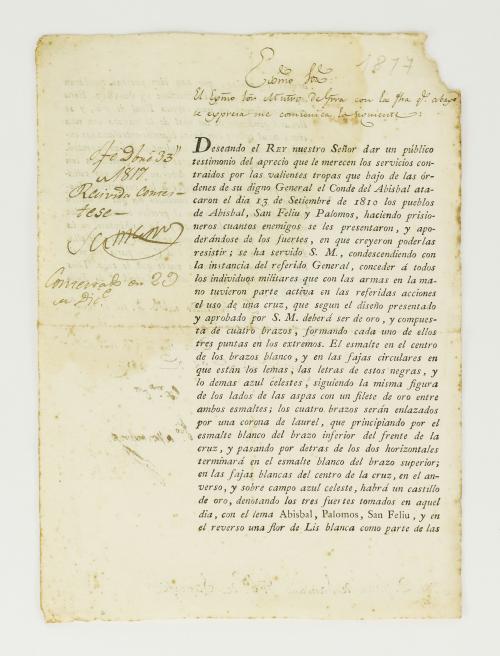 1817
Exmo Sor
El Exmo Sor Mtro de Grra con la fha qe abajo
se expresa me comunica lo siguiente:
1817
Recivida Contes-
tese
Contestado en 29
Deseando el REY nuestro Señor dar un público
testimonio del aprecio que le merecen los servicios con-
traidos por las valientes tropas que bajo de las ór-
denes de su digno General el Conde del Abisbal ata-
caron el dia 13 de Setiembre de 1810 los pueblos
de Abisbal, San Feliu y Palomos, haciendo prisio-
neros cuantos enemigos se les presentaron, y apo-
derándose de los fuertes, en que creyeron poderlas
resistir; se ha servido S. M., condescendiendo con
la instancia del referido General, conceder á todos
los individuos militares que con las armas en la ma-
no tuvieron parte activa en las referidas acciones
el uso de una cruz, que segun el diseño presentado
y aprobado por S. M. deberá ser de oro, y compues-
ta de cuatro brazos, formando cada uno de ellos
tres puntas en los extremos. El esmalte en el centro
de los brazos blanco, y en las fajas circulares en
que están los lemas, las letras de estos negras, y
lo demas azul celestes, siguiendo la misma figura
de los lados de las aspas con un filete de oro entre
ambos esmaltes; los cuatro brazos serán enlazados
por una corona de laurel, que principiando por el
esmalte blanco del brazo inferior del frente de la
cruz, y pasando por detras de los dos horizontales
terminará en el esmalte blanco del brazo superior;
en las fajas blancas del centro de la cruz, en el an-
verso, y sobre campo azul celeste, habrá un castillo
de oro, denotando los tres fuertes tomados en aquel
dia, con el lema Abisbal, Palomos, San Feliu, y en
el reverso una flor de Lis blanca como parte de las